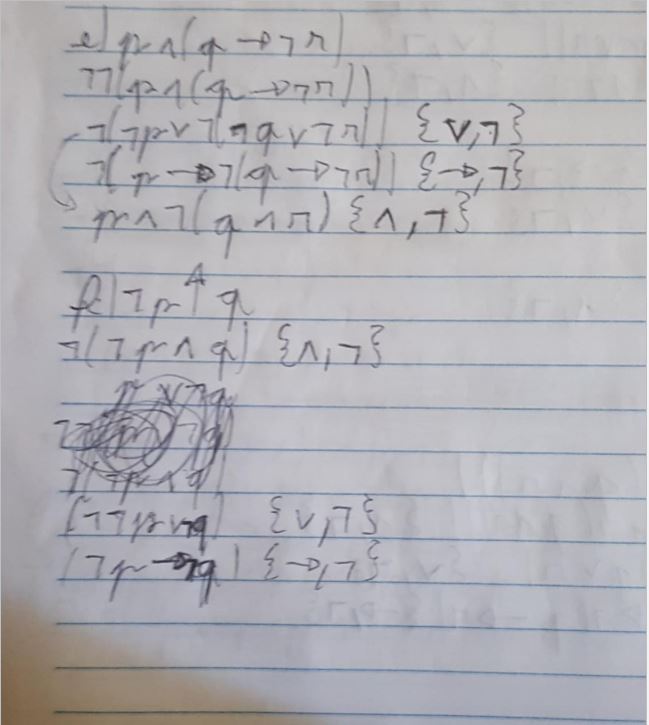 e) p∧(q→¬r)
¬¬(p∧(q→¬r))
¬(¬p∨¬(¬q∨¬r)) {∨,¬}
¬(p→¬(q→¬r)) {→,¬}
p∧¬(q∧r) {∧,¬}
f) ¬p↑q
¬(¬p∧q) {∧,¬}
(¬¬p∨¬q) {∨,¬}
(¬p→¬q) {→,¬}